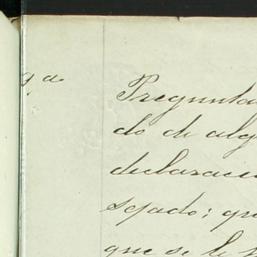 9ª
Pregunta
do de alg
declaració
sgado; qu
que se le